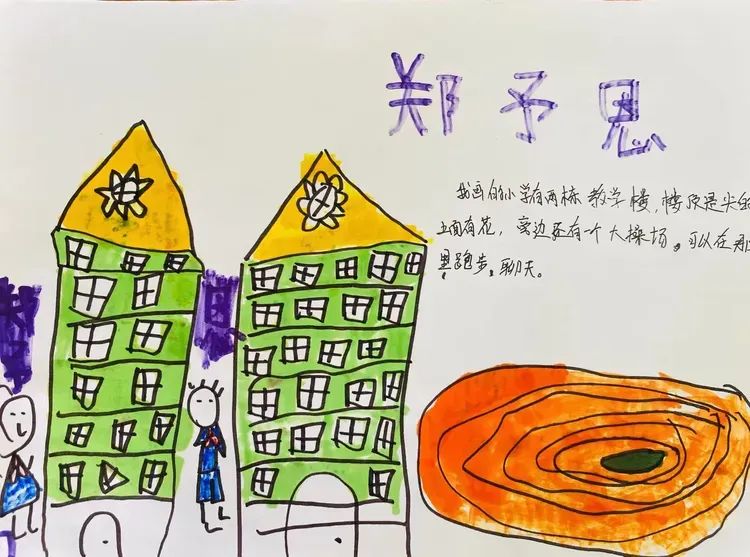 郑予思
我画的小学有两栋教学楼,楼顶是尖的
上面有花,旁边还有一个大操场。可以在那
里跑步,聊天。